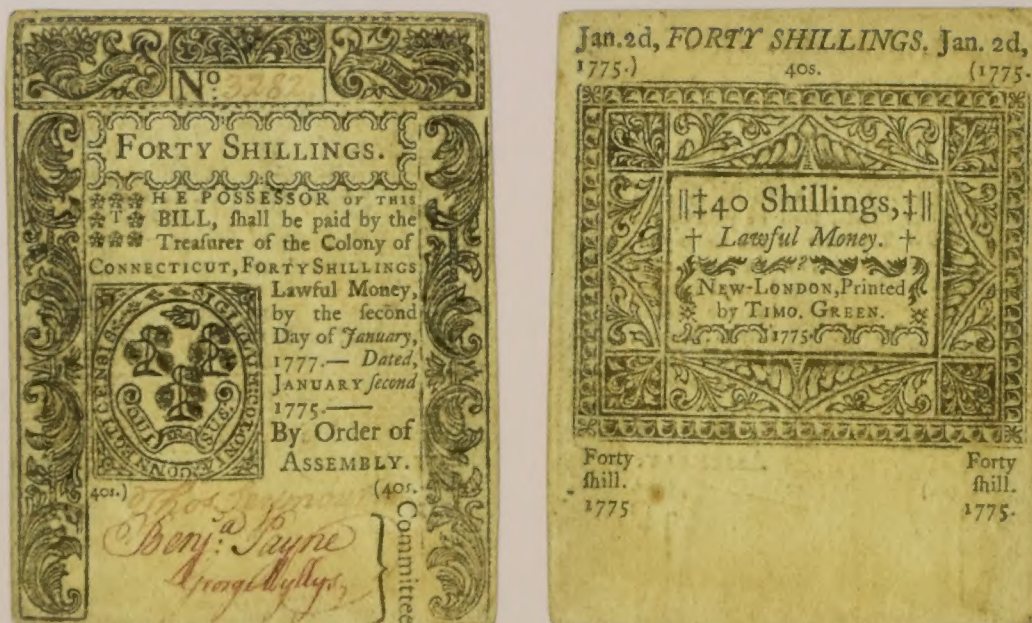 No. 3282
FORTY SHILLINGS.
THE POSSESSOR OF THIS
BILL, ſhall be paid by the
Treaſurer of the Colony of
CONNECTICUT, FORTY SHILLINGS
Lawful Money,
by the ſecond
Day of January,
1777.— Dated,
JANUARY ſecond
1775.—
By Order of
ASSEMBLY.
SIGILLUM COLONIÆ CONNECTICENSIS
QUI TRA SUS
40s.) (40s.
Thos Seymour
Benja. Payne
George Wyllys,
Committee
Jan. 2d, FORTY SHILLINGS. Jan. 2d,
1775.) 40s. (1775
||‡40 Shillings,‡||
† Lawful Money. †
NEW-LONDON, Printed
by TIMO. GREEN.
1775.
Forty Forty
ſhill. ſhill.
1775 1775.